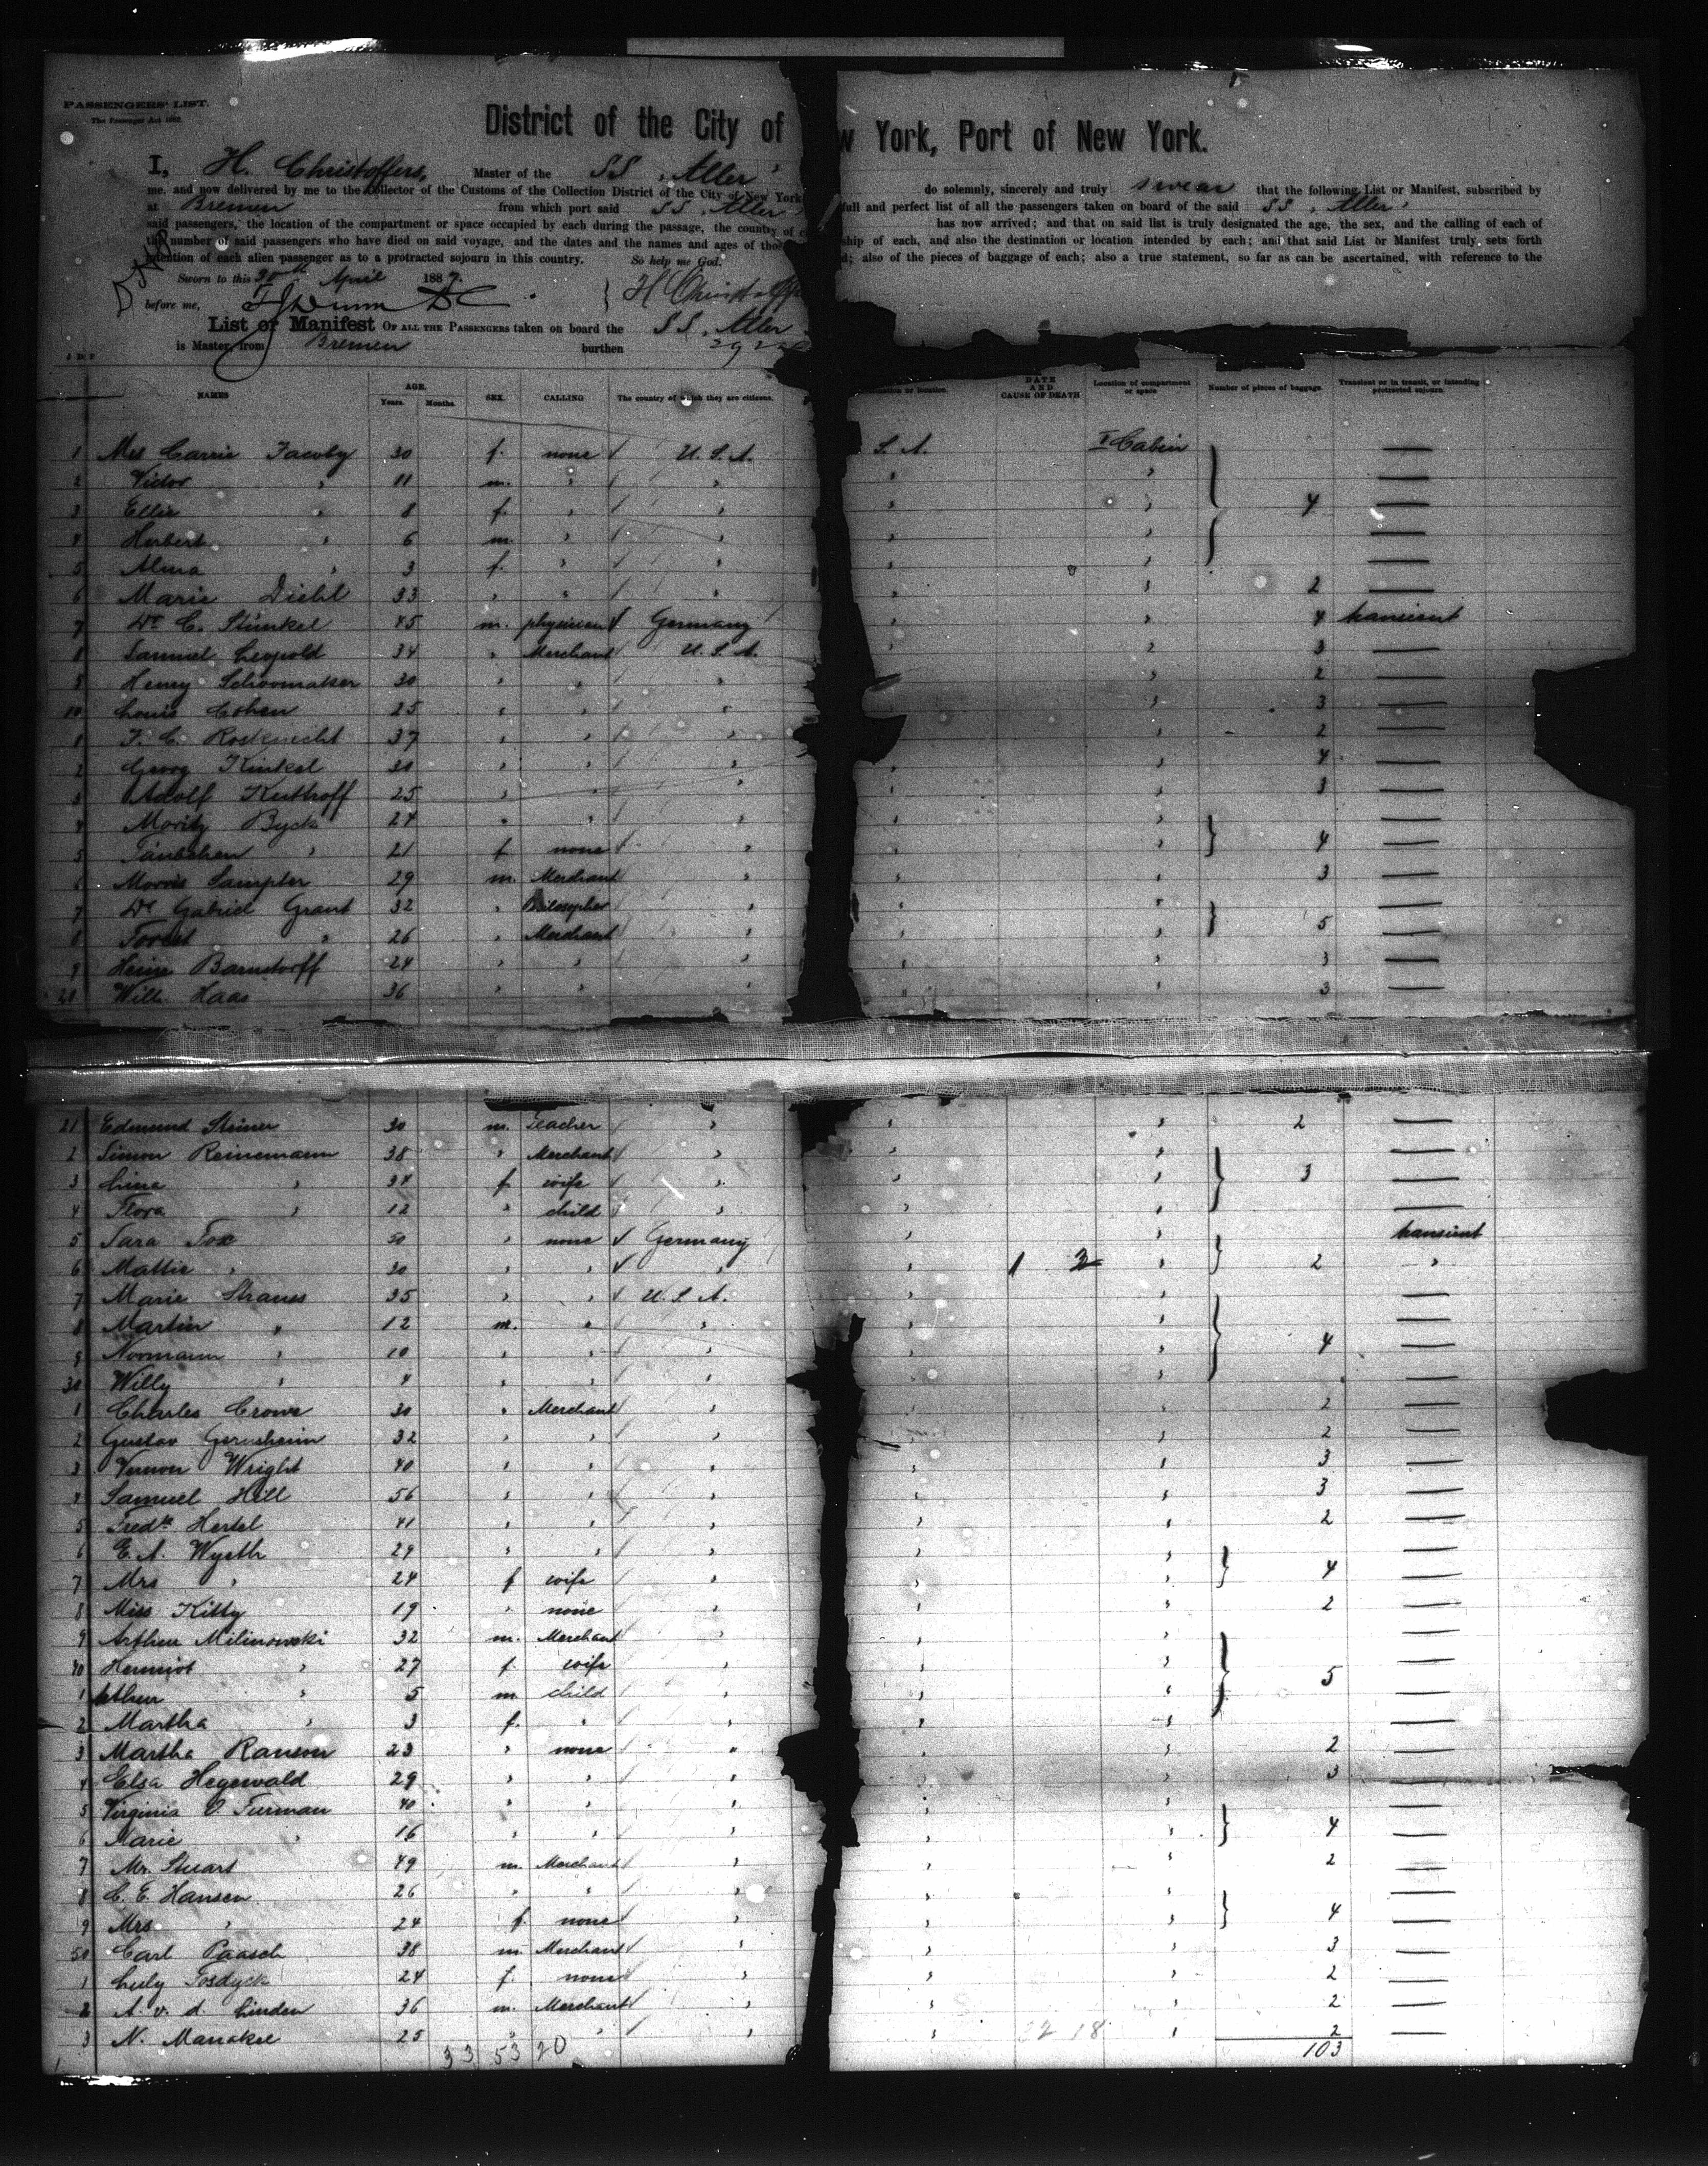 PASSENGERS' LIST.
The Passenger Act 1882.
District of the City of w York, Port of New York.
I, H. Christoffers, Master of the SS „Aller" do solemnly, sincerely and truly swear that the following List or Manifest, subscribed by
me, and now delivered by me to the Collector of the Customs of the Collection District of the City of New York full and perfect list of all the passengers taken on board of the said SS „Aller"
at Bremen from which port said SS „Aller" has now arrived; and that on said list is truly designated the age, the sex, and the calling of each of
said passengers, the location of the compartment or space occupied by each during the passage, the country of ship of each, and also the destination or location intended by each; and that said List or Manifest truly sets forth
the number of said passengers who have died on said voyage, and the dates and the names and ages of those d; also of the pieces of baggage of each; also a true statement, so far as can be ascertained, with reference to the
intention of each alien passenger as to a protracted sojourn in this country. So help me God.
Sworn to this 30th April 1887.
before me, H Christoffers
List or Manifest OF ALL THE PASSENGERS taken on board the SS „Aller
is Master, from Bremen burthen
NAMES AGE. Years. Months. SEX. CALLING The country of which they are citizens. or location. DATE AND CAUSE OF DEATH Location of compartment or space Number of pieces of baggage. Transient or in transit, or intending protracted sojourn.
1 Mrs Carrie Jacoby 30 f. none U. S. A. S. A. I Cabin —
2 Victor " 11 m. " " " " —
3 Ellie " 8 f. " " " " 4 —
4 Herbert " 6 m. " " " " —
5 Alma " 3 f. " " " " —
6 Marie Diehl 33 " " " " " 2 —
7 Dr C. Stünkel 45 m. physician Germany " " 4 transient
8 Samuel Leopold 34 " Merchant U. S. A. " " 3 —
9 Henry Schoomaker 30 " " " " 2 —
10 Louis Cohen 25 " " " " 3 —
1 F. C. Rosknecht 37 " " " " 2 —
2 Georg Kinkel 30 " " " " " 4 —
3 Adolf Kerthoff 25 " " " " " 3 —
4 Moritz Byck 24 " " " " " —
5 Täubchen " 21 f. none " " " 4 —
6 Morris Sampter 29 m. Merchant " " " 3 —
7 Dr Gabriel Grant 32 " Philosopher " " " —
8 Forest " 26 " Merchant " " " 5 —
9 Heinr Barnstorff 24 " " " " " 3 —
20 Will. Haas 36 " " " " " 3 —
21 Edmund Steiner 30 m. Teacher " " " 2 —
2 Simon Reinemann 38 " Merchant " " " —
3 Lina " 34 f wife " " " 3 —
4 Flora " 12 " child " " " —
5 Sara Fox 50 " none Germany " " transient
6 Mattie " 30 " " " " 1 2 " 2 "
7 Marie Strauss 35 " " U. S. A. " " —
8 Martin " 12 m. " " " " —
9 Noomann " 10 " " " " " 4 —
30 Willy " 4 " " " " " —
1 Charles Crowe 30 " Merchant " " " 2 —
2 Gustav Gernsheim 32 " " " " 2 —
3 Vernon Wright 40 " " " " " 3 —
4 Samuel Hill 56 " " " " " 3 —
5 Fredk Hertel 41 " " " " " 2 —
6 E. A. Wyeth 29 " " " " " —
7 Mrs " 24 f wife " " " 4 —
8 Miss Kitty 19 " none " " " 2 —
9 Arthur Milinowski 32 m. Merchant " " " —
40 " 27 f. wife " " " —
1 " 5 m. child " " 5 —
2 Martha " 3 f. " " " " —
3 Martha Ranson 23 " none " " " 2 —
4 Elsa Hegewald 29 " " " " " 3 —
5 Virginia O. Furman 40 " " " " " —
6 Marie " 16 " " " " " 4 —
7 Mr. Stuart 49 m. Merchant " " " 2 —
8 C. E. Hansen 26 " " " " " —
9 Mrs " 24 f. none " " " 4 —
50 Carl Paasch 38 m. Merchant " " " 3 —
1 Luly Fosdyck 24 f. none " " " 2 —
2 A. v. d. Linden 36 m. Merchant " " " 2 —
3 N. 25 " " " " 18 " 2 —
33 53 20 103